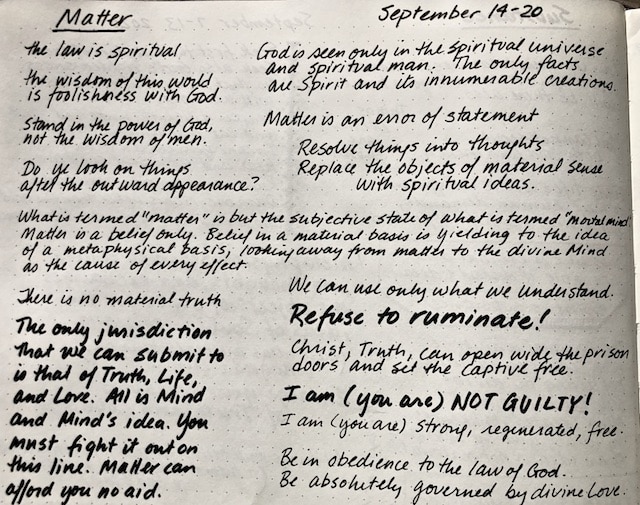 Matter
September 14-20
the law is spiritual
the wisdom of this world
is foolishness with God.
Stand in the power of God,
not the wisdom of men.
Do ye look on things
after the outward appearance?
God is seen only in the spiritual universe
and spiritual man. The only facts
are Spirit and its innumerable creations.
Matter is an error of statement
Resolve things into thoughts
Replace the objects of material sense
with spiritual ideas.
What is termed "matter" is but the subjective state of what is termed "mortal mind"
Matter is a belief only. Belief in a material basis is yielding to the idea
of a metaphysical basis, looking away from matter to the divine Mind
as the cause of every effect.
There is no material truth
The only jurisdiction
that we can submit to
is that of Truth, Life,
and Love. All is Mind
and Mind's idea. You
must fight it out on
this line. Matter can
afford you no aid.
We can use only what we understand.
Refuse to ruminate!
Christ, Truth, can open wide the prison
doors and set the captive free.
I am (you are) NOT GUILTY!
I am (you are) strong, regenerated, free.
Be in obedience to the law of God.
Be absolutely governed by divine Love.